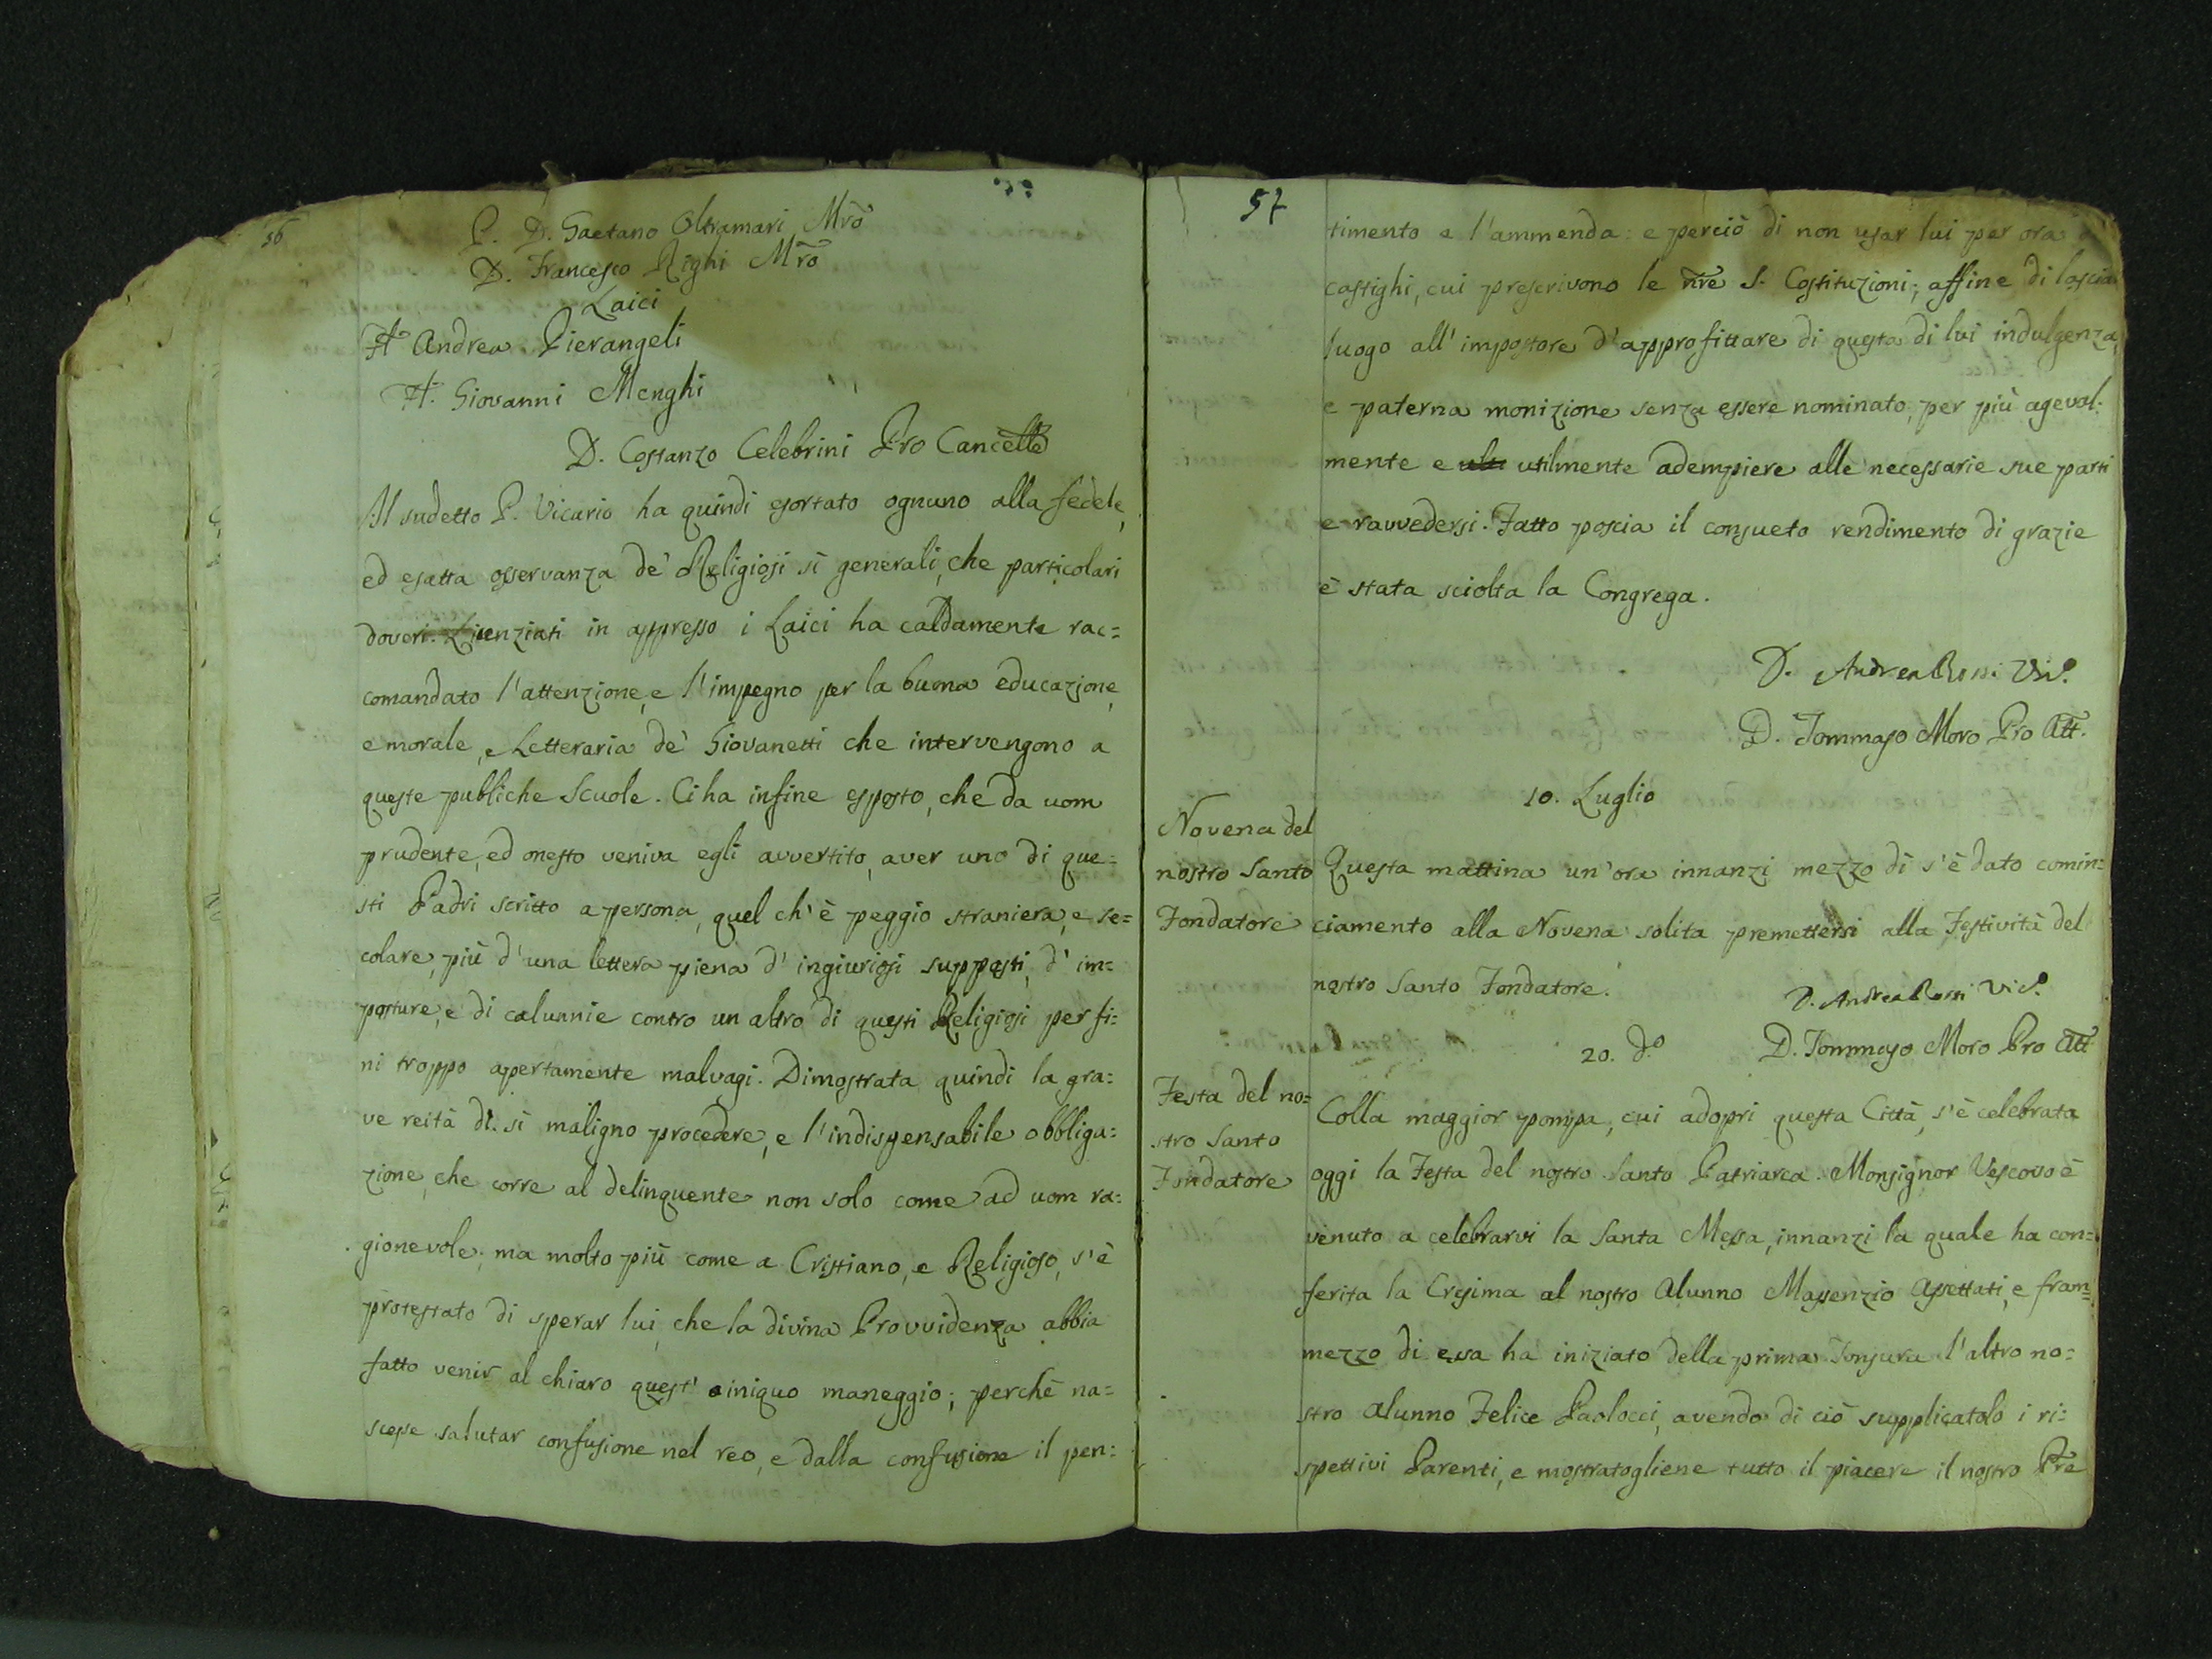 56
P. D. Gaetano Oltramari Mrõ
D. Francesco Righi Mrõ
Laici
Andrea Pierangeli
Giovanni Menghi
D. Costanzo Celebrini Pro Cancelle
Il sudetto P. Vicario ha quindi esortato ognuno alla fedele,
ed esatta osservanza de' Religiosi sì generali, che particolari
doveri. Licenziati in appresso i Laici ha caldamente rac=
comandato l'attenzione, e l'impegno per la buona educazione,
e morale, e Letteraria de' Giovanetti che intervengono a
queste publiche Scuole. Ci ha infine esposto, che da uom
prudente, ed onesto veniva egli avvertito, aver uno di que=
sti Padri scritto a persona, quel ch'è peggio straniera, e se=
colare, più d'una lettera piena d'ingiuriosi supposti, d'im=
posture, e di calunnie contro un altro di questi Religiosi per fi=
ni troppo apertamente malvagi. Dimostrata quindi la gra=
ve reità di sì maligno procedere, e l'indispensabile obbliga=
zione, che corre al delinquente non solo come ad uom ra=
gionevole; ma molto più come a Cristiano, e Religioso, s'è
protestato di sperar lui, che la divina Provvidenza abbia
fatto venir al chiaro quest' iniquo maneggio; perchè na=
scesse salutar confusione nel reo, e dalla confusione il pen=
57
timento e l'ammenda: e perciò di non usar lui per ora
castighi, cui prescrivono le nre S. Costituzioni; affine di lasciar
luogo all'impostore d'approfittare di questa di lui indulgenza,
e paterna monizione senza essere nominato, per più agevol=
mente e utilmente adempiere alle necessarie sue parti
e ravvedersi. Fatto poscia il consueto rendimento di grazie
è stata sciolta la Congrega.
D. Andrea Rossi Vic.º
D. Tommaso Moro Pro Att.
10. Luglio
Novena del
nostro Santo
Fondatore
Questa mattina un'ora innanzi mezzo dì s'è dato comin=
ciamento alla Novena solita premettersi alla Festività del
nostro Santo Fondatore.
D. Andrea Rossi Vic.º
D. Tommaso Moro Pro Att
20. d.º
Festa del no=
stro Santo
Fondatore
Colla maggior pompa, cui adopri questa Città, s'è celebrata
oggi la Festa del nostro Santo Patriarca. Monsignor Vescovo è
venuto a celebrarvi la Santa Messa, innanzi la quale ha con=
ferita la Cresima al nostro Alunno Massenzio Assettati, e fram=
mezzo di essa ha iniziato della prima Tonsura l'altro no=
stro Alunno Felice Paolocci, avendo di ciò supplicatolo i ri=
spettivi Parenti, e mostratogliene tutto il piacere il nostro Pre